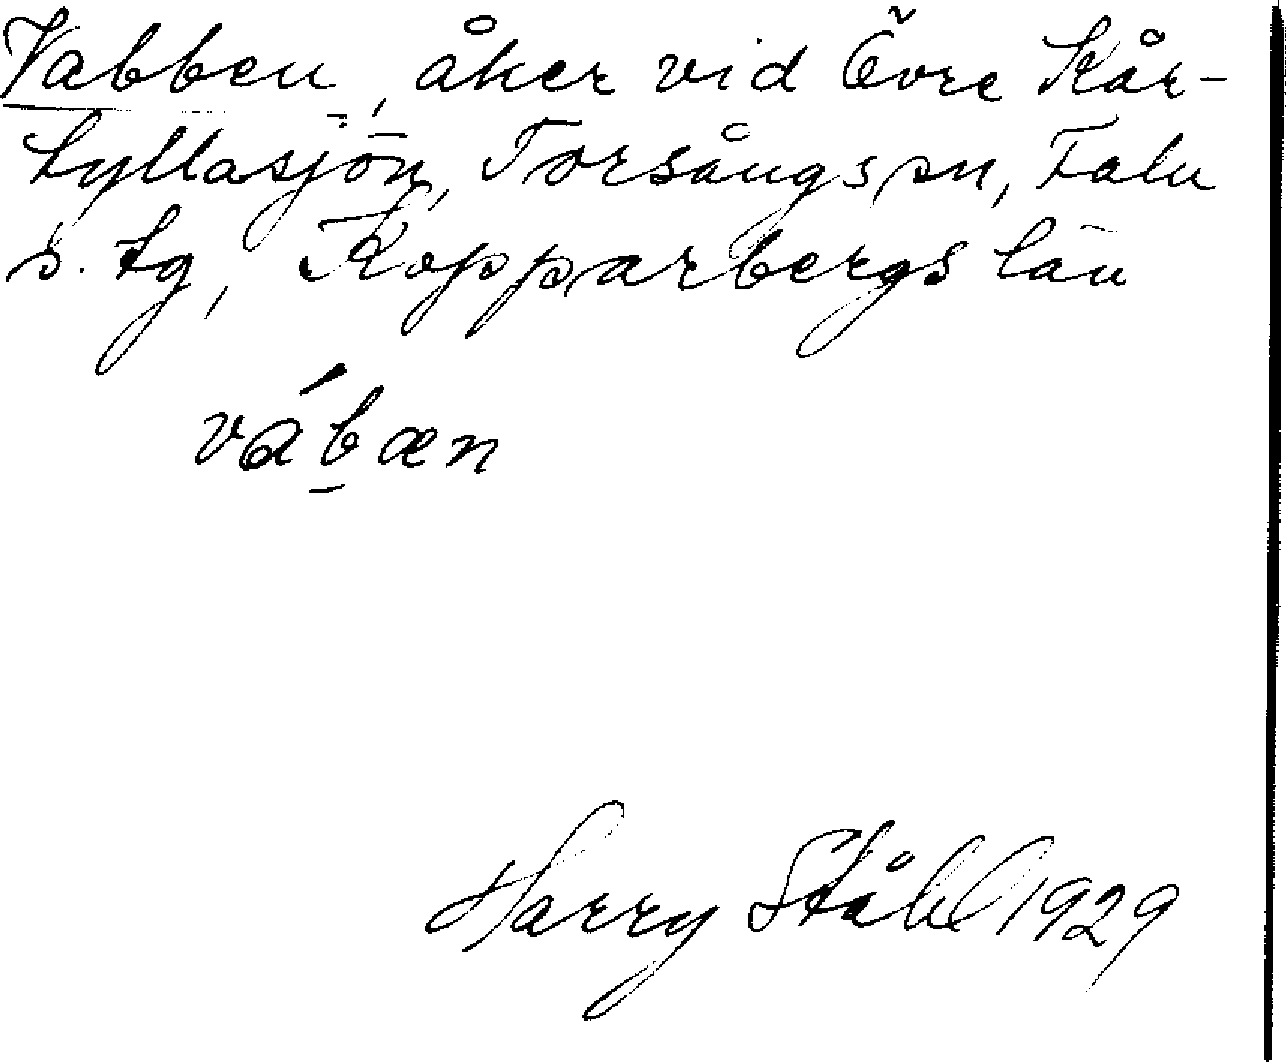 Vabben, åker vid Övre Kår-
tyllasjön, Torsångs sn, Falu
s. tg, Kopparbergs län
vábæn
Harry Ståhl 1929